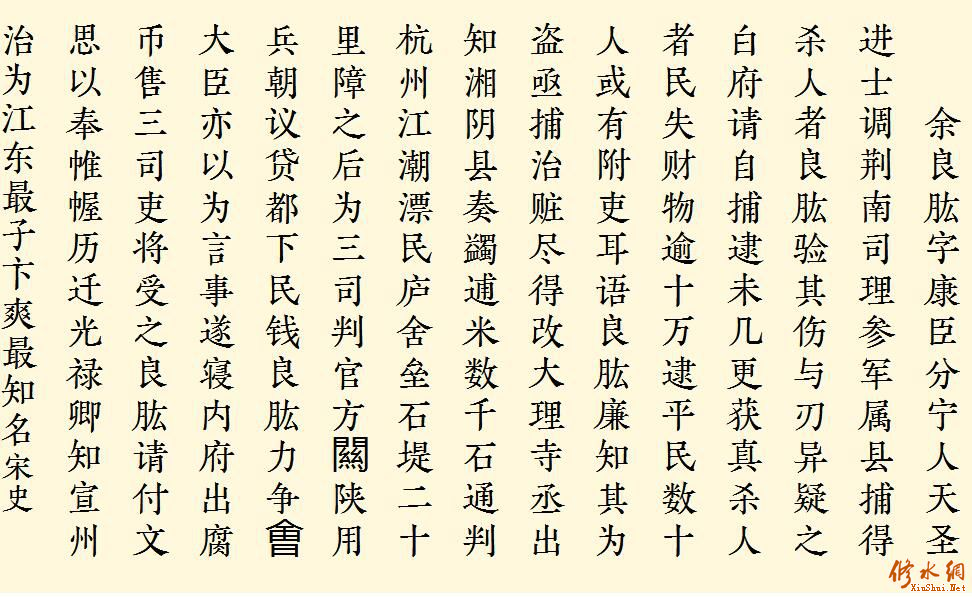 余良肱字康臣分宁人天圣
进士调荆南司理参军属县捕得
杀人者良肱验其伤与刃异疑之
白府请自捕逮未几更获真杀人
者民失财物逾十万逮平民数十
人或有附吏耳语良肱廉知其为
盗亟捕治赃尽得改大理寺丞出
知湘阴县奏蠲逋米数千石通判
杭州江潮漂民庐舍垒石堤二十
里障之后为三司判官方闗陕用
兵朝议贷都下民钱良肱力争會
大臣亦以为言事遂寝内府出腐
币售三司吏将受之良肱请付文
思以奉帷幄历迁光禄卿知宣州
治为江东最子卞爽最知名宋史
修水網
XiuShui.Net